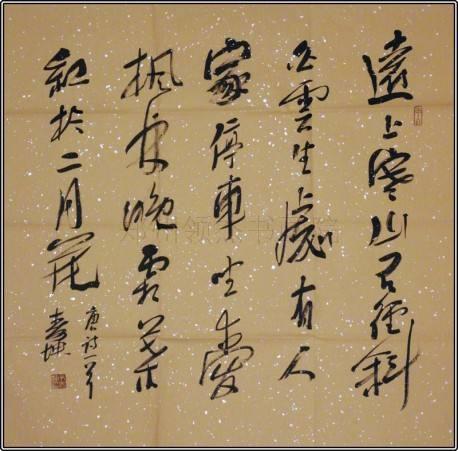 遠上寒山石徑斜
白雲生處有人
家停車坐愛
楓林晚霜葉
紅於二月花
唐詩一首